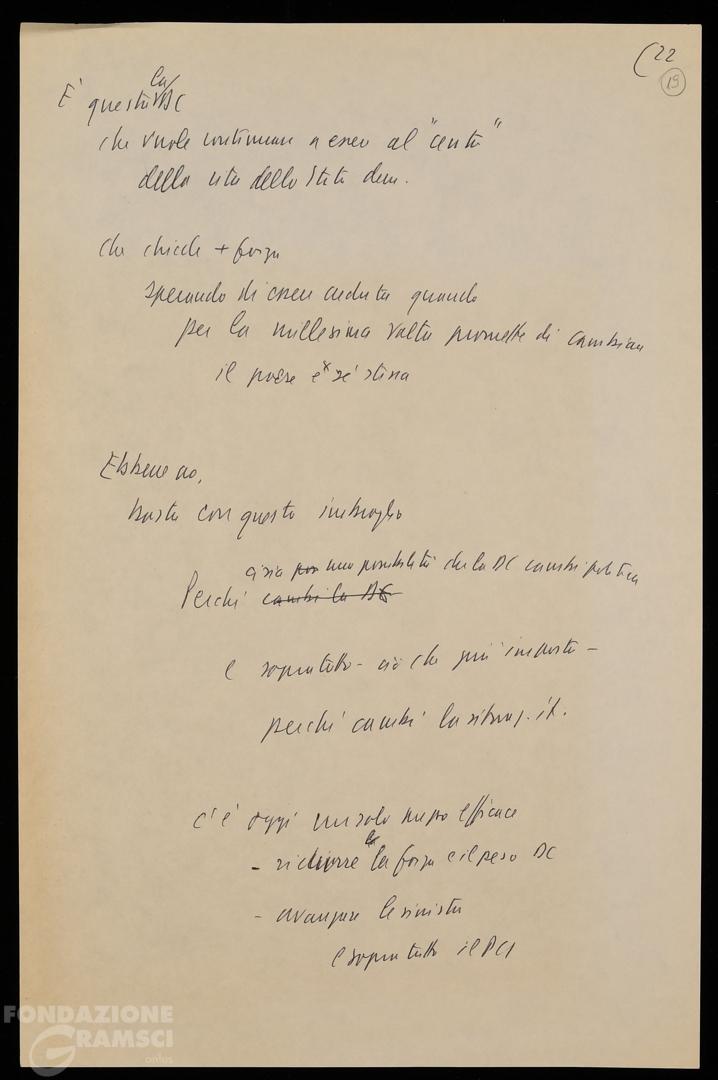 (22
19
E' questa la DC
che vuole continuare a essere al "centro"
della vita dello Stato dem.
che chiede + forza
sperando di essere creduta quando
per la millesima volta promette di cambiare
il paese e sé stessa
Ebbene no,
basta con questo imbroglio
ci sia una possibilità che la DC cambi politica
Perché cambi la DC
e soprattutto - ciò che più importa -
perché cambi la situaz. it.
c'è oggi un solo mezzo efficace
- ridurre la forza e il peso DC
- avanzare le sinistre
e soprattutto il PCI
FONDAZIONE
GRAMSCI
onlus